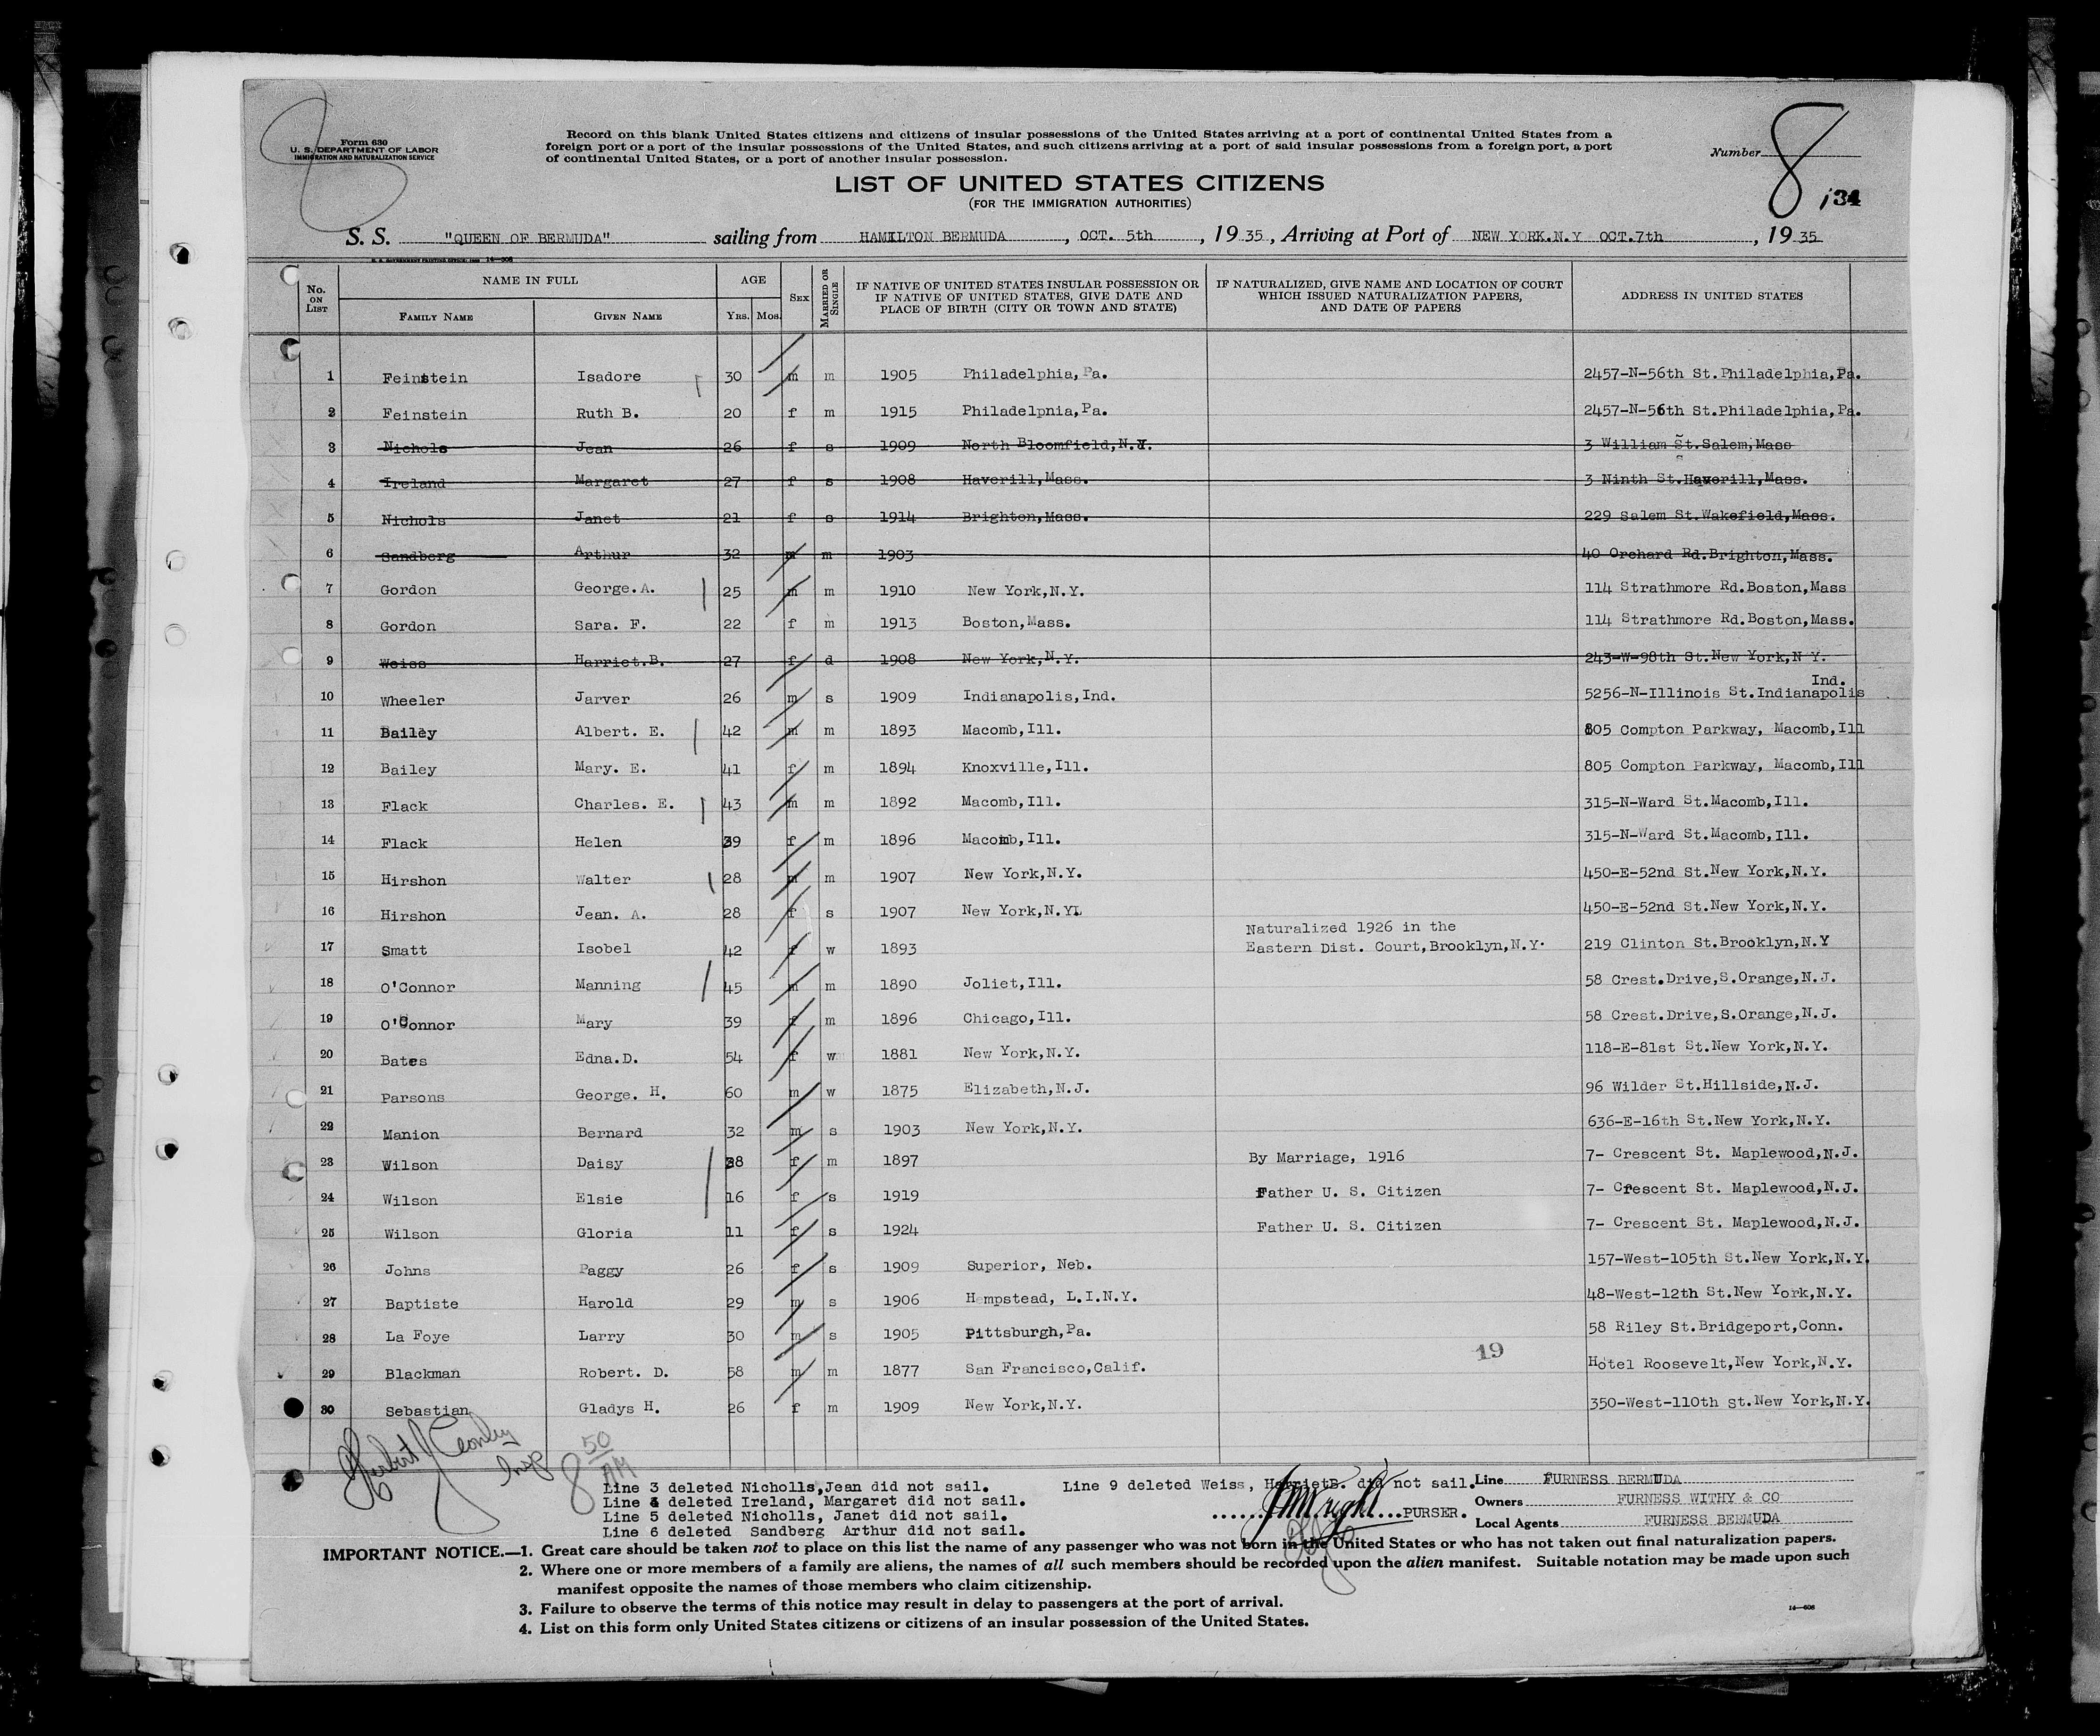 Form 630
U. S. DEPARTMENT OF LABOR
IMMIGRATION AND NATURALIZATION SERVICE
Record on this blank United States citizens and citizens of insular possessions of the United States arriving at a port of continental United States from a
foreign port or a port of the insular possessions of the United States, and such citizens arriving at a port of said insular possessions from a foreign port, a port
of continental United States, or a port of another insular possession.
Number 8
134
LIST OF UNITED STATES CITIZENS
(FOR THE IMMIGRATION AUTHORITIES)
S. S. "QUEEN OF BERMUDA" sailing from HAMILTON BERMUDA, OCT. 5th, 19 35, Arriving at Port of NEW YORK.N.Y OCT.7th, 19 35
No. ON LIST NAME IN FULL FAMILY NAME GIVEN NAME AGE YRS. MOS. SEX MARRIED OR SINGLE IF NATIVE OF UNITED STATES INSULAR POSSESSION OR IF NATIVE OF UNITED STATES, GIVE DATE AND PLACE OF BIRTH (CITY OR TOWN AND STATE) IF NATURALIZED, GIVE NAME AND LOCATION OF COURT WHICH ISSUED NATURALIZATION PAPERS, AND DATE OF PAPERS ADDRESS IN UNITED STATES
1 Feinstein Isadore 30 m m 1905 Philadelphia,Pa. 2457-N-56th St.Philadelphia,Pa.
2 Feinstein Ruth B. 20 f m 1915 Philadelpnia,Pa. 2457-N-56th St.Philadelphia,Pa.
3 Nichols Jean 26 f s 1909 North Bloomfield,N.Y. 3 William St.Salem,Mass
4 Ireland Margaret 27 f s 1908 Haverill,Mass. 3 Ninth St.Haverill,Mass.
5 Nichols Janet 21 f s 1914 Brighton,Mass. 229 Salem St.Wakefield,Mass.
6 Sandberg Arthur 32 m m 1903 40 Orchard Rd.Brighton,Mass.
7 Gordon George.A. 25 m m 1910 New York,N.Y. 114 Strathmore Rd.Boston,Mass
8 Gordon Sara. F. 22 f m 1913 Boston,Mass. 114 Strathmore Rd.Boston,Mass.
9 Weiss Harriet.B. 27 f d 1908 New York,N.Y. 243-W-98th St.New York,N Y.
10 Wheeler Jarver 26 m s 1909 Indianapolis,Ind. 5256-N-Illinois St.Indianapolis Ind.
11 Bailey Albert. E. 42 m m 1893 Macomb,Ill. 805 Compton Parkway, Macomb,Ill
12 Bailey Mary. E. 41 f m 1894 Knoxville,Ill. 805 Compton Parkway, Macomb,Ill
13 Flack Charles. E. 43 m m 1892 Macomb,Ill. 315-N-Ward St.Macomb,Ill.
14 Flack Helen 39 f m 1896 Macomb,Ill. 315-N-Ward St.Macomb,Ill.
15 Hirshon Walter 28 m m 1907 New York,N.Y. 450-E-52nd St.New York,N.Y.
16 Hirshon Jean. A. 28 f s 1907 New York,N.Y. 450-E-52nd St.New York,N.Y.
Naturalized 1926 in the
17 Smatt Isobel 42 f w 1893 Eastern Dist. Court,Brooklyn,N.Y. 219 Clinton St.Brooklyn,N.Y
18 O'Connor Manning 45 m m 1890 Joliet,Ill. 58 Crest.Drive,S.Orange,N.J.
19 O'Connor Mary 39 f m 1896 Chicago,Ill. 58 Crest.Drive,S.Orange,N.J.
20 Bates Edna.D. 54 f w 1881 New York,N.Y. 118-E-81st St.New York,N.Y.
21 Parsons George. H. 60 m w 1875 Elizabeth,N.J. 96 Wilder St.Hillside,N.J.
22 Manion Bernard 32 m s 1903 New York,N.Y. 636-E-16th St.New York,N.Y.
23 Wilson Daisy 38 f m 1897 By Marriage, 1916 7- Crescent St. Maplewood,N.J.
24 Wilson Elsie 16 f s 1919 Father U. S. Citizen 7- Crescent St. Maplewood,N.J.
25 Wilson Gloria 11 f s 1924 Father U. S. Citizen 7- Crescent St. Maplewood,N.J.
26 Johns Paggy 26 f s 1909 Superior, Neb. 157-West-105th St.New York,N.Y.
27 Baptiste Harold 29 m s 1906 Hempstead, L.I.N.Y. 48-West-12th St.New York,N.Y.
28 La Foye Larry 30 m s 1905 Pittsburgh,Pa. 58 Riley St.Bridgeport,Conn.
19
29 Blackman Robert. D. 58 m m 1877 San Francisco,Calif. Hotel Roosevelt,New York,N.Y.
30 Sebastian Gladys H. 26 f m 1909 New York,N.Y. 350-West-110th St.New York,N.Y.
8 50 AM
Line 3 deleted Nicholls,Jean did not sail. Line 9 deleted Weiss, HarrietB. did not sail.
Line 4 deleted Ireland, Margaret did not sail.
Line 5 deleted Nicholls, Janet did not sail.
Line 6 deleted Sandberg Arthur did not sail.
PURSER.
Line FURNESS BERMUDA
Owners FURNESS WITHY & CO
Local Agents FURNESS BERMUDA
IMPORTANT NOTICE.—1. Great care should be taken not to place on this list the name of any passenger who was not born in the United States or who has not taken out final naturalization papers.
2. Where one or more members of a family are aliens, the names of all such members should be recorded upon the alien manifest. Suitable notation may be made upon such
manifest opposite the names of those members who claim citizenship.
3. Failure to observe the terms of this notice may result in delay to passengers at the port of arrival.
4. List on this form only United States citizens or citizens of an insular possession of the United States.